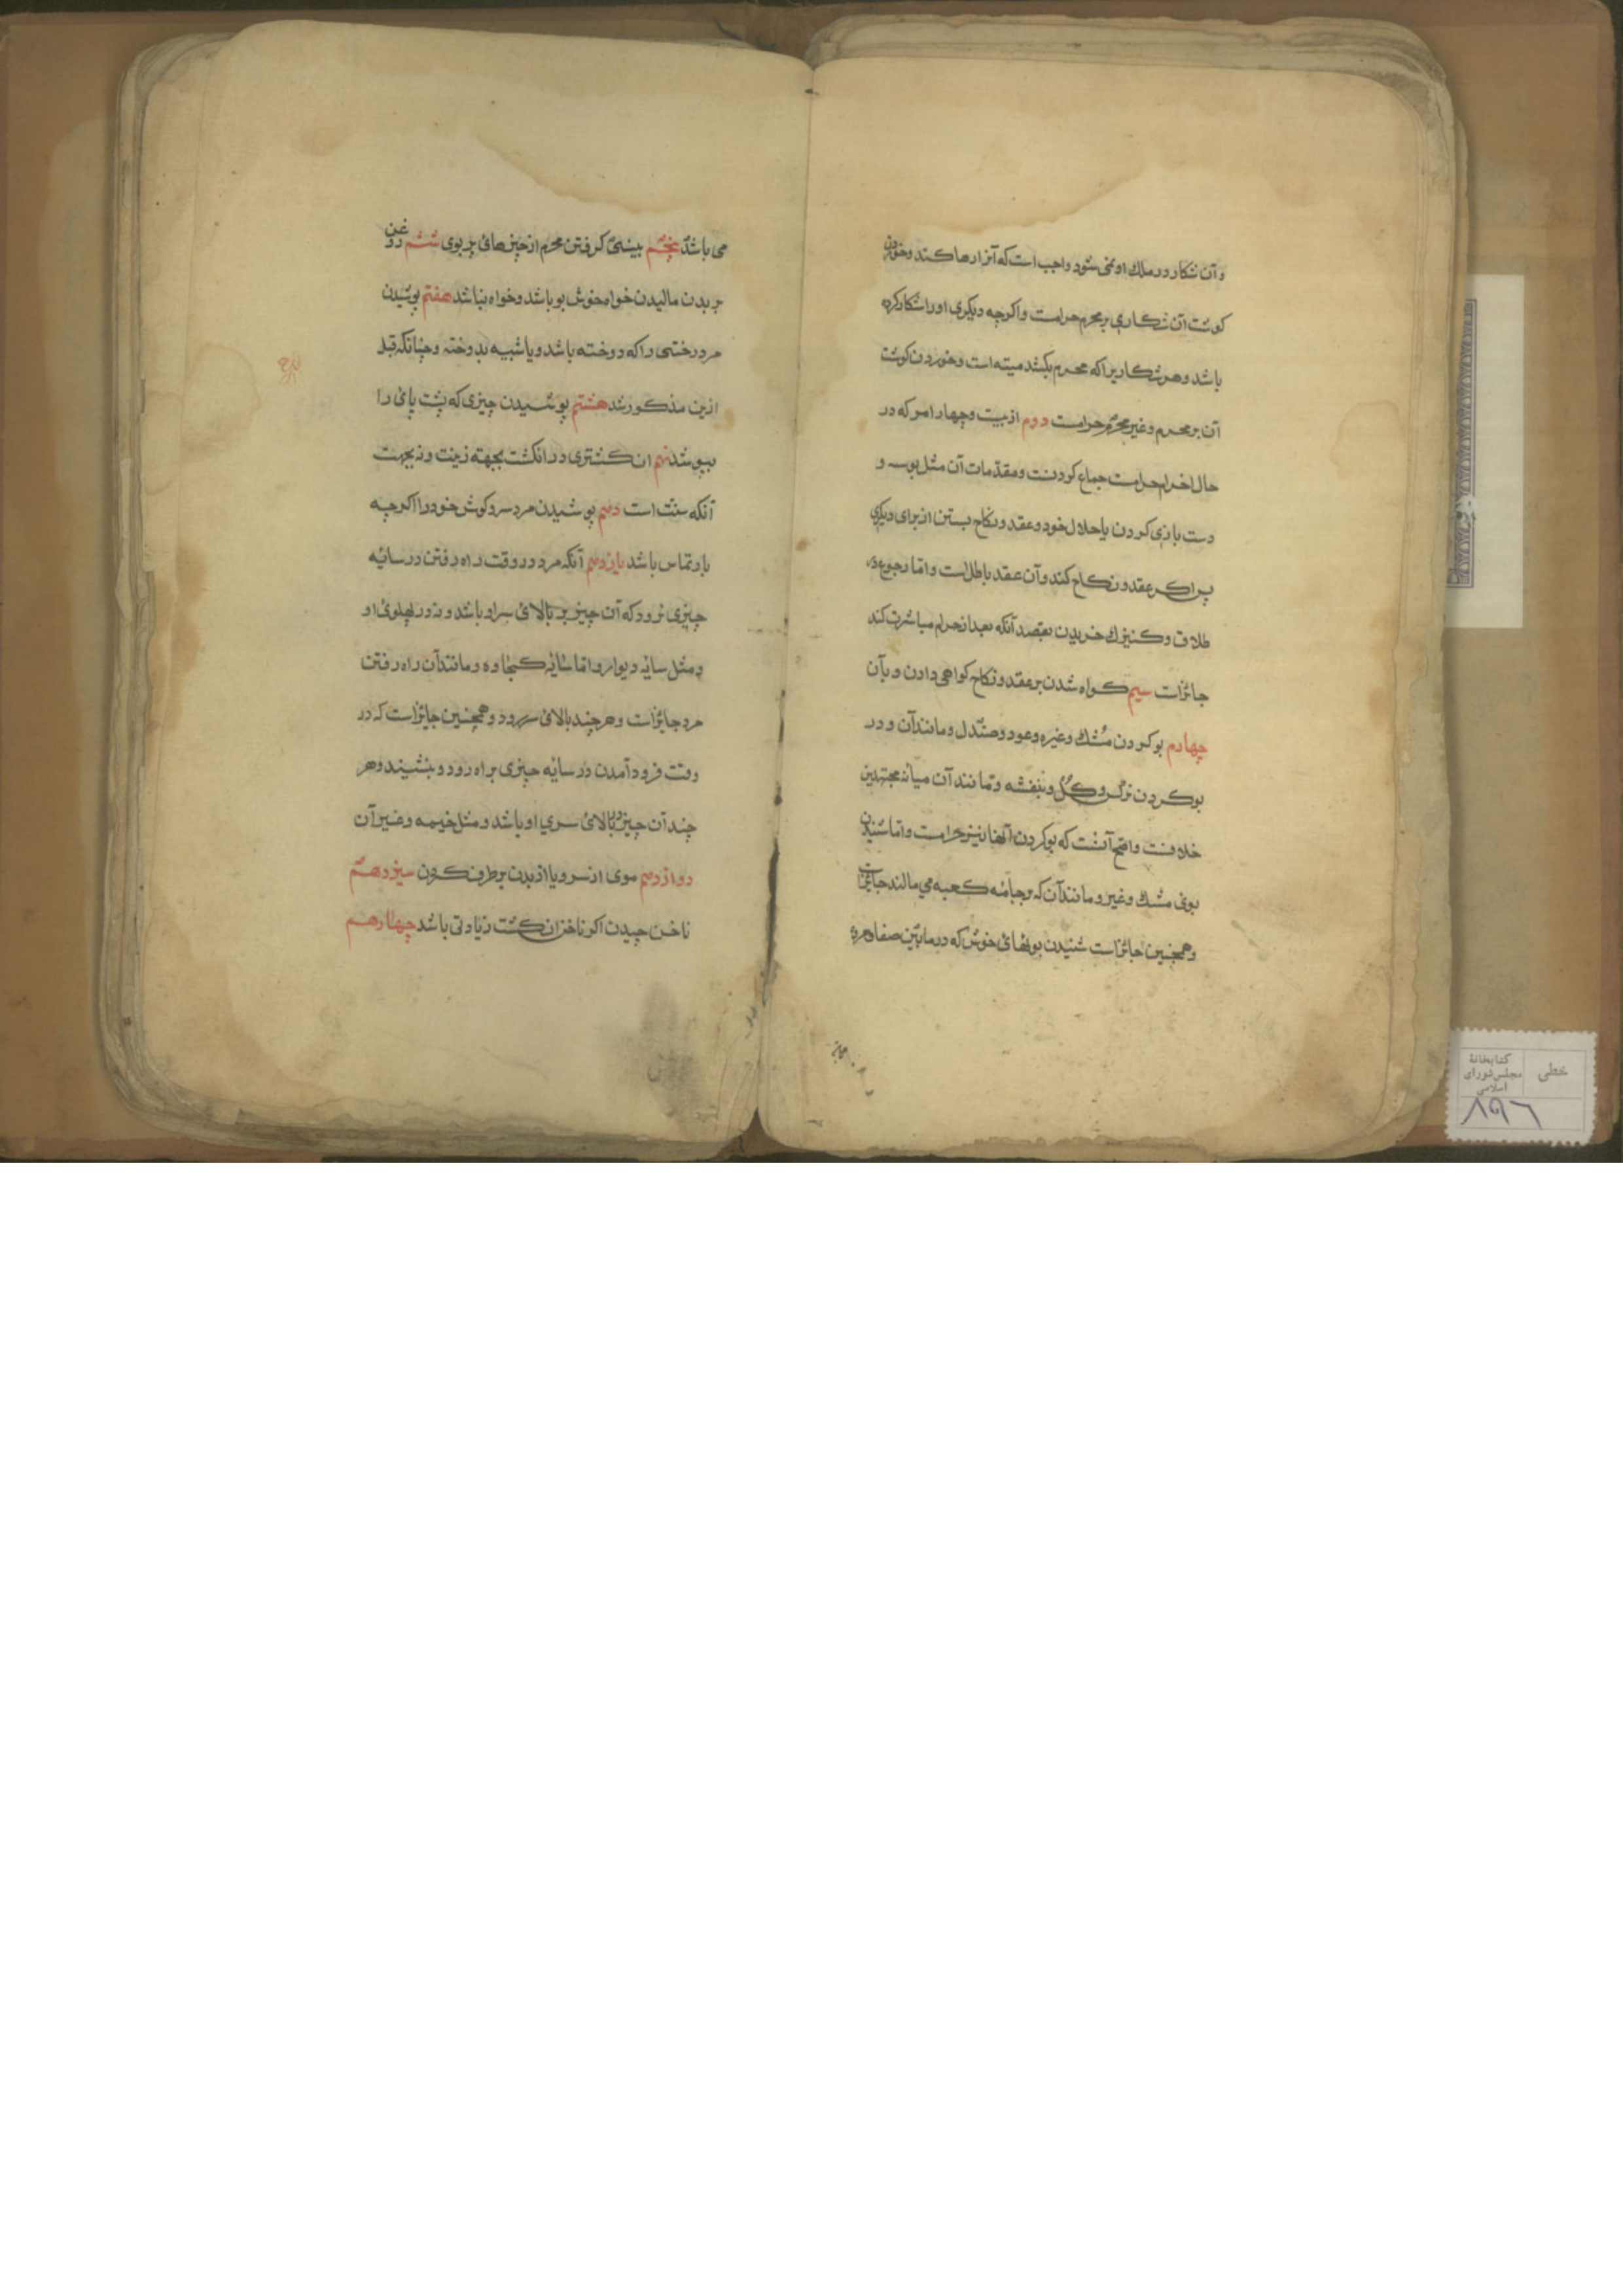 و آن شکار در ملك او نمی شود واجب است که آنرا رها کند و خوردن
کوشت آن شکاری بر محرم حرامست و اکرچه دیکری او را شکار کرده
باشد و هر شکاریرا که محرم بکشد میته است و خوردن کوشت
آن بر محرم و غیر محرم حرامست دوم از بیست و چهار امر که در
حال احرام حرامست جماع کردنست و مقدّمات آن مثل بوسه و
دست بازی کردن با حلال خود و عقد و نکاح بستن از برای دیکری
پس اکر عقد و نکاح کند و آن عقد باطل است و امّا رجوع در
طلاق و کنیزك خریدن بقصد آنکه بعد از احرام مباشرت کند
جائز است سیم کواه شدن بر عقد و نکاح کواهی دادن و بآن
چهارم بو کردن مُشك و غیره و عود و صندل و مانند آن و در
بو کردن نرکس و کُل و بنفشه و مانند آن میانه مجتهدین
خلافست و اصَحّ آنست که بو کردن آنها نیز حرامست و امّا شنیدن
بوی مشك و غیر و مانند آن که بر جامه کعبه می مالند جایز است
و همچنین جائز است شنیدن بویهائ خوش که در مابین صفا و مروه
می باشد پنجم بینی کرفتن محرم از چیزهائ بد بوی ششم روغن
بر بدن مالیدن خواه خوش بو باشد و خواه نباشد هفتم پوشیدن
مرد رختی را که دوخته باشد و یا شبیه بدوخته و چنانکه قبل
ازین مذکور شد هشتم پوشیدن چیزی که پشت پائ را
بپوشد نهم انکشتری در انکشت بجهته زینت و نه بجهت
آنکه سنّت است دهم پوشیدن مرد سر و کوش خود را اکرچه
بارتماس باشد یازدهم آنکه مرد در وقت راه رفتن در سایه
چیزی نرود که آن چیز بر بالائ سر او باشد و نه در پهلوئ او
و مثل سایه دیوار و امّا سایه کجاوه و مانند آن راه رفتن
مرد جایز است و هر چند بالائ سر رود و همچنین جایز است که در
وقت فرود آمدن در سایه چیزی براه رود و بنشیند و هر
چند آن چیز بالائ سری او باشد و مثل خیمه و غیر آن
دوازدهم موی از سر و یا از بدن بر طرف کردن سیزدهم
ناخن چیدن اکر ناخن انکشت زیادتی باشد چهاردهم
خطی
کتابخانهٔ
مجلس شورای
اسلامی
۸۹۶